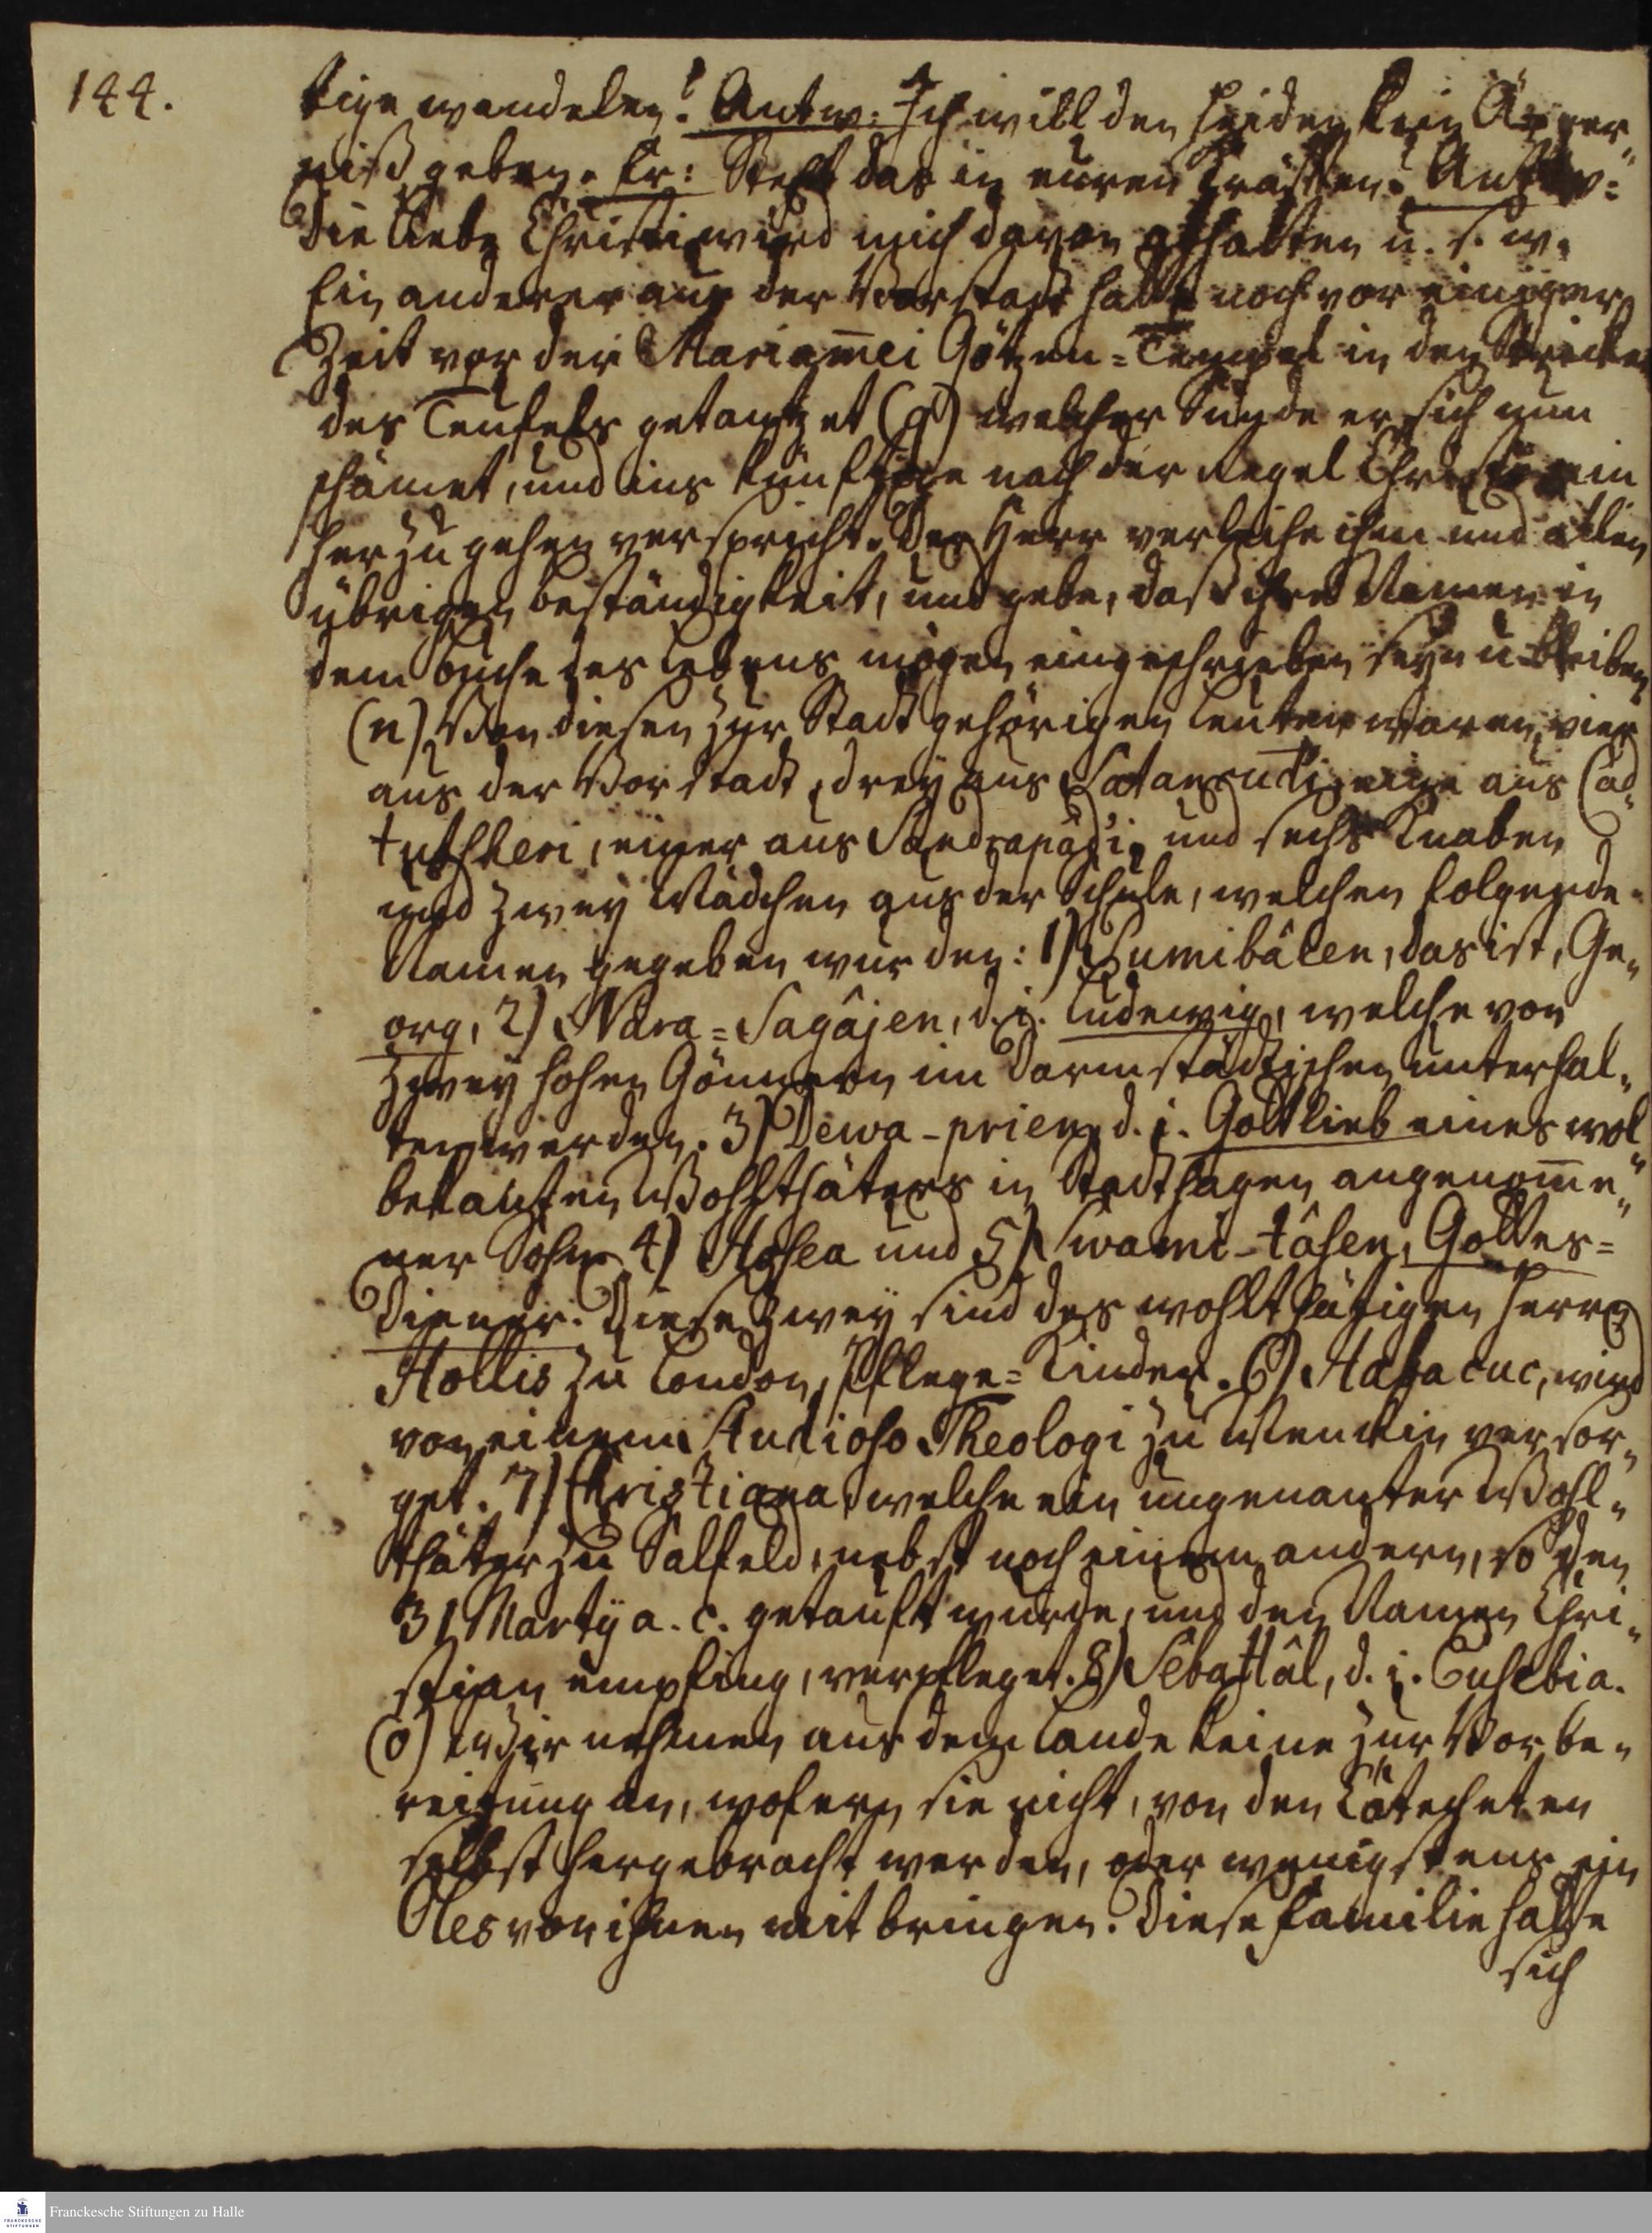 144.
tige wandelen? Antw: Ich will den Heiden kein Ärger„
niß geben. Fr: Steht das in euren Kräften? Antw:
Die Liebe Christi wird mich davon abhalten u. s. w.
Ein anderer aus der Vorstadt hatte noch vor einiger
Zeit vor der Mariam̄ei Götzen=Tempel in den Stricken
des Teufels getantzet (q) welcher Sünde er sich nun
schämet, und ins künftige nach der Regel Christi ein
her zu gehen verspricht. Der Herr verleihe ihm und allen
übrigen beständigkeit, und gebe, daß ihre Namen in
dem buche des Lebens mögen eingeschrieben seyn u. bleiben
(n) Von diesen zur Stadt gehörigen Leuten waren vier
aus der Vorstadt, drey aus Sátancudi, eine aus Cad„
tutscheri, einer aus Sandrapádi, und sechs Knaben
und zwey Mädchen aus der Schule, welchen folgende
Namen gegeben wurden: 1) Pumibâlen, das ist, Ge„
org, 2) Nára=Sagâjen, d. i. Ludewig, welche von
zwey hohen Gönnern im Darmstädtischen unterhal„
ten werden. 3) Dewa-prien, d. i. Gottlieb eines wol„
bekanten Wohlthäters in Stadthagen angenom̄e„
ner Sohn 4) Hosea und 5) Swami-tâsen, Gottes=
Diener. Diese zwey sind des wohlthätigen Herrn
Hollis zu London, Pflege=Kinder. 6) Habacuc, wird
von einem Studioso Theologi zu Wenckin versor„
get. 7) Christiana, welche ein ungenanter Wohl„
thäter zu Salfeld, nebst noch einem andern, so den
31 Martÿ a. c. getauft wurde, und den Namen Chri„
stian empfing, verpfleget. 8) Sebattâl, d. i. Eusebia.
(o) Wir nehmen aus dem Lande keine zur Vorbe„
reitung an, wofern sie nicht, von den Catecheten
selbst hergebracht werden, oder wenigstens ein
Oles von ihnen mit bringen. Diese Familie hatte
sich
Franckesche Stiftungen zu Halle